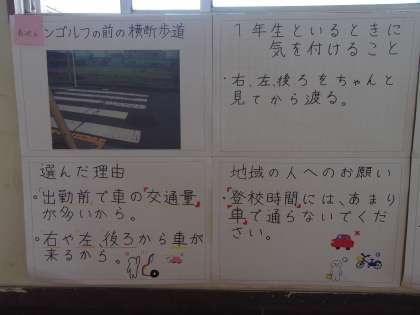 ンゴルフの前の横断歩道
1年生といるときに
気を付けること
・右、左、後ろをちゃんと
見てから渡る。
選んだ理由
・「出勤前で車の「交通量」
が多いから。
・右や左、後ろから車が
来るから。
地域の人へのお願い
・「登校時間」には、あまり
車で通らないでくだ
さい。